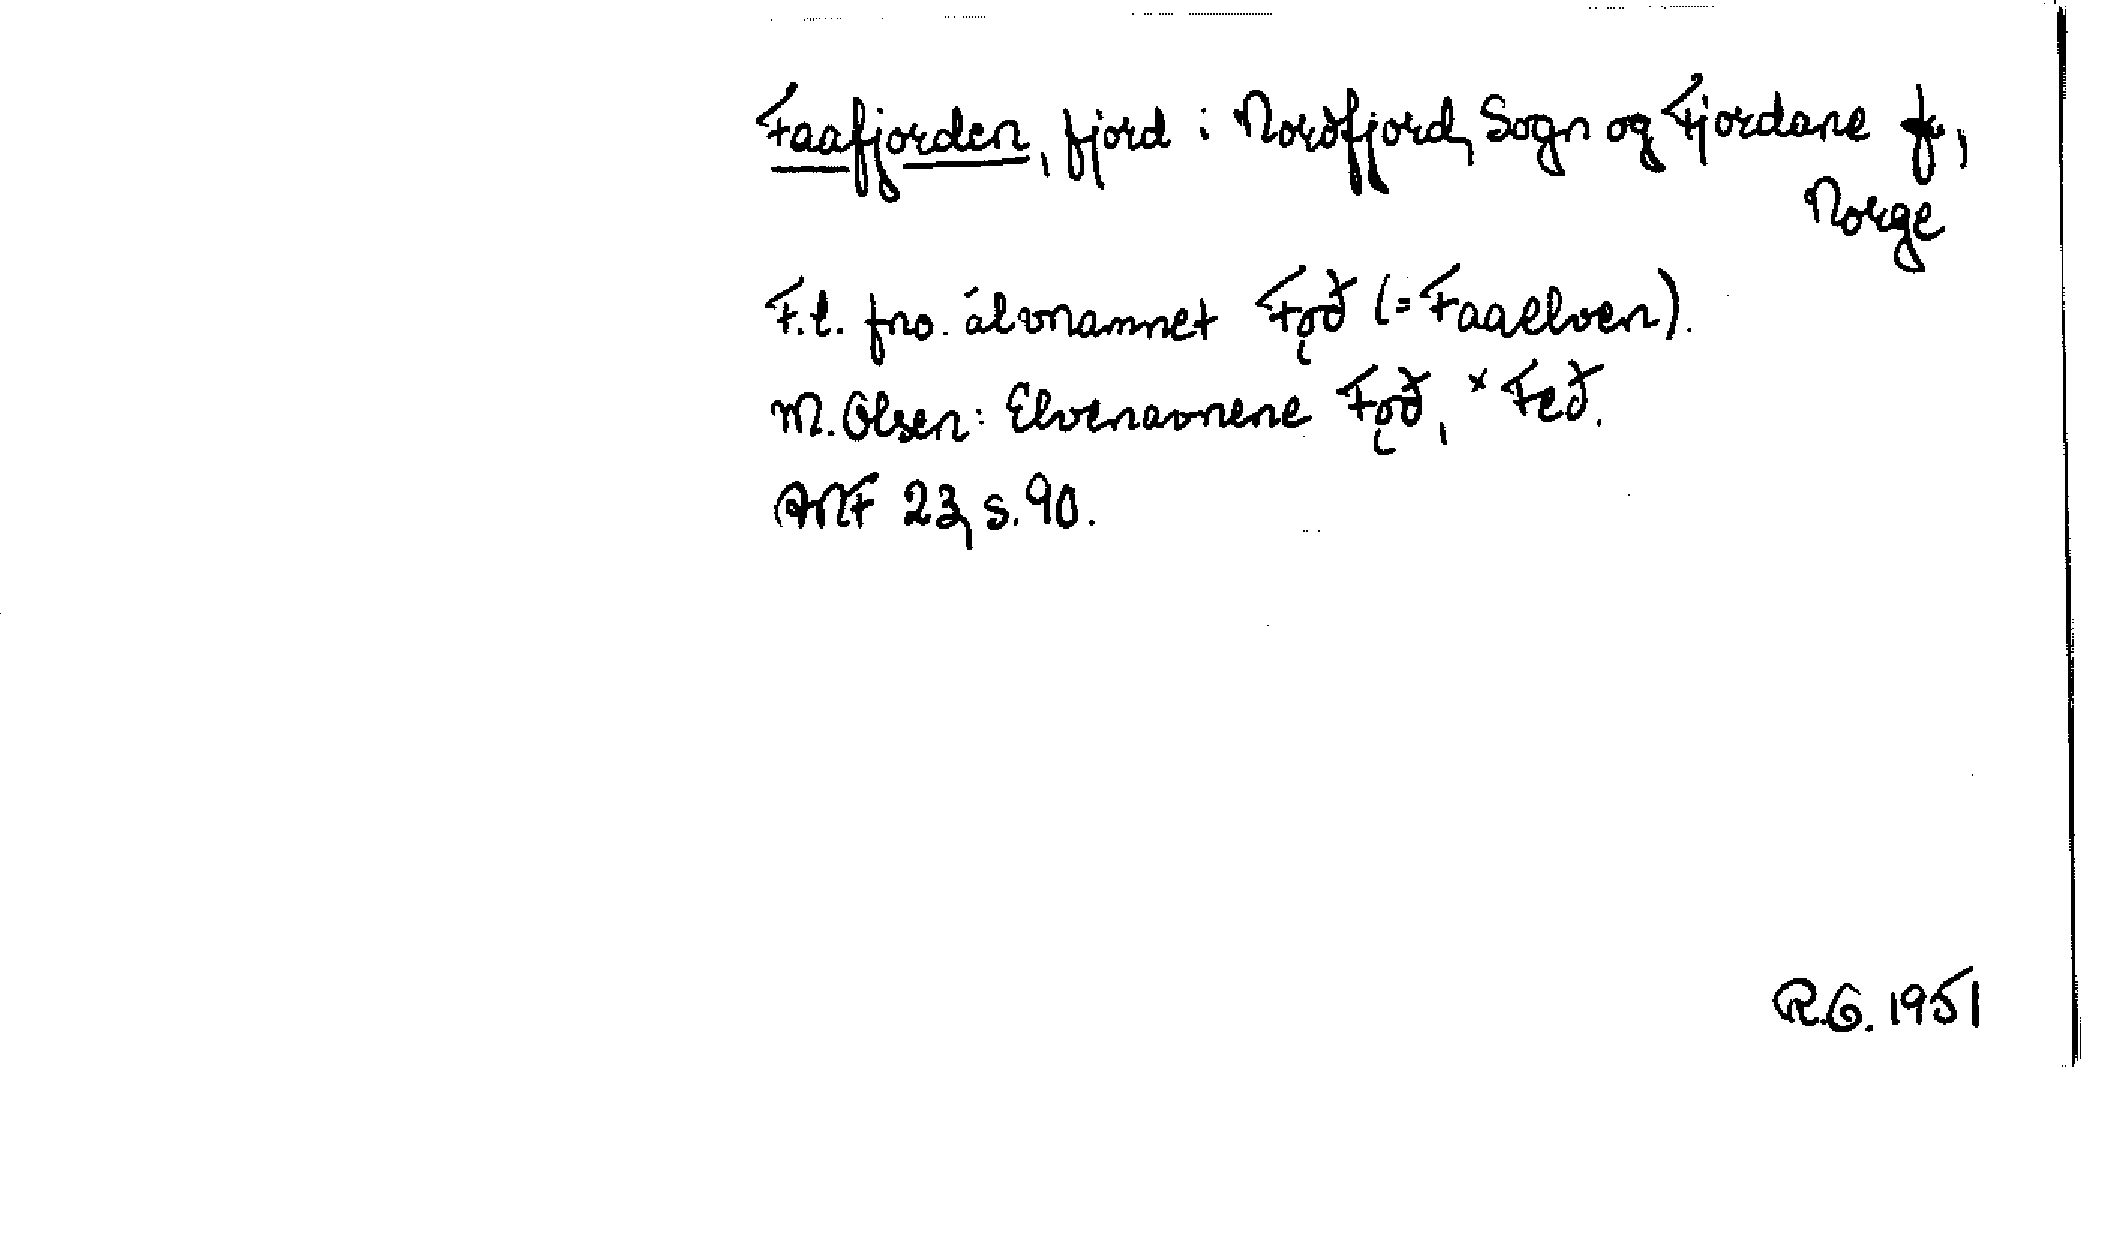 Faafjorden, fjord i Nordfjord, Sogn og Fjordane f.,
Norge
F.l. fno. älvnamnet Fǫð (= Faaelven).
M. Olsen: Elvenavnene Fǫð, ˣFeð.
ANF 23, s. 90.
R.G. 1951